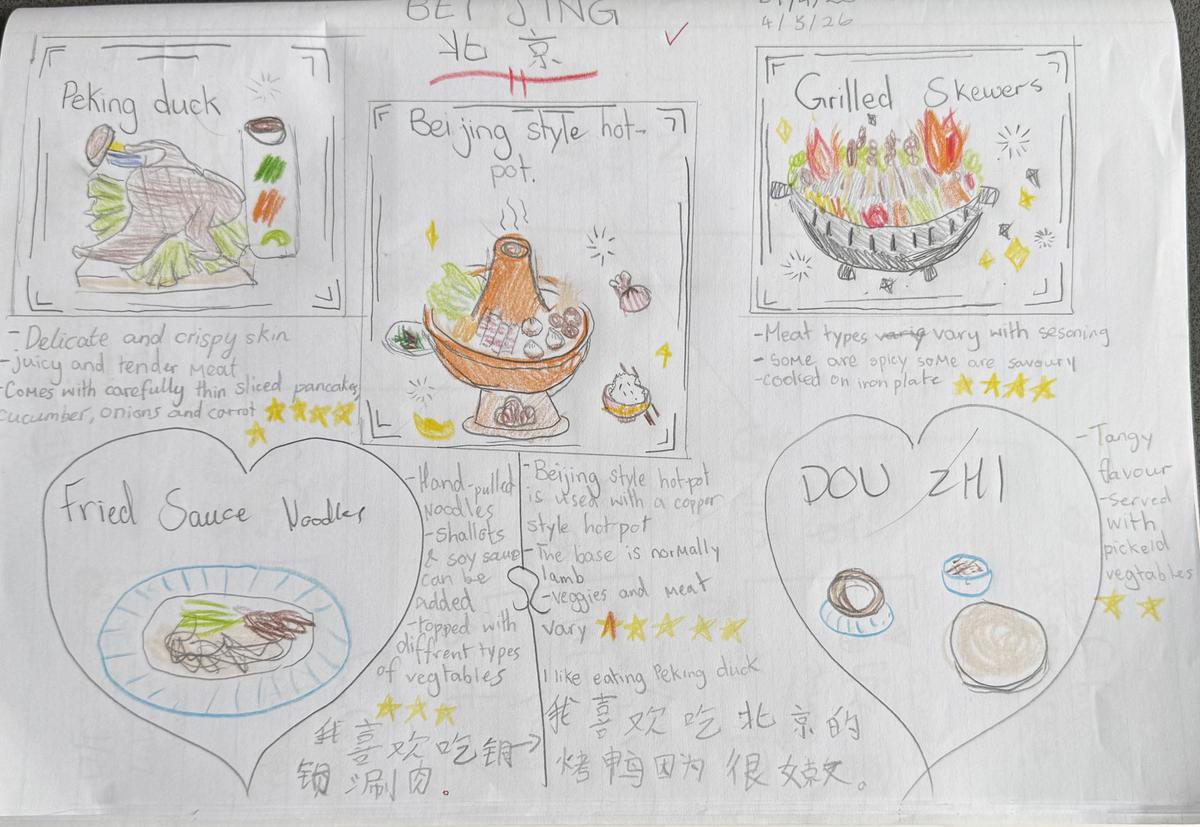 BEIJING
4/3/26
北京
Peking duck
Beijing style hot-
pot.
Grilled Skewers
-Delicate and crispy skin
-juicy and tender meat
-Comes with carefully thin sliced pancake,
cucumber, onions and carrot
-Meat types varig vary with sesoning
-some are spicy some are savoury
-cooked on iron plate
Fried Sauce Noodles
-Hand-pulled
Noodles
-shallots
& soy sauce
can be
added
-topped with
diffrent types
of vegtables
-Beijing style hot-pot
is used with a copper
style hot-pot
-The base is normally
lamb
-veggies and meat
vary
DOU ZHI
-Tangy
flavour
-served
with
pickeld
vegtables
我喜欢吃铜
锅涮肉.
I like eating Peking duck
我喜欢吃北京的
烤鸭因为很嫩。